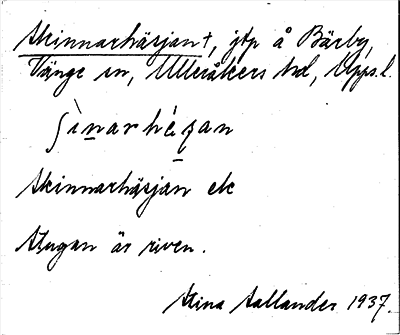 Skinnarhäsjan †, jtp å Bärby,
Vänge sn, Ulleråkers hd, Upps.l.
ʃìnarhɛ̀ʃan
Skinnarhäsjan etc
Stugan är riven.
Stina Sallander 1937.